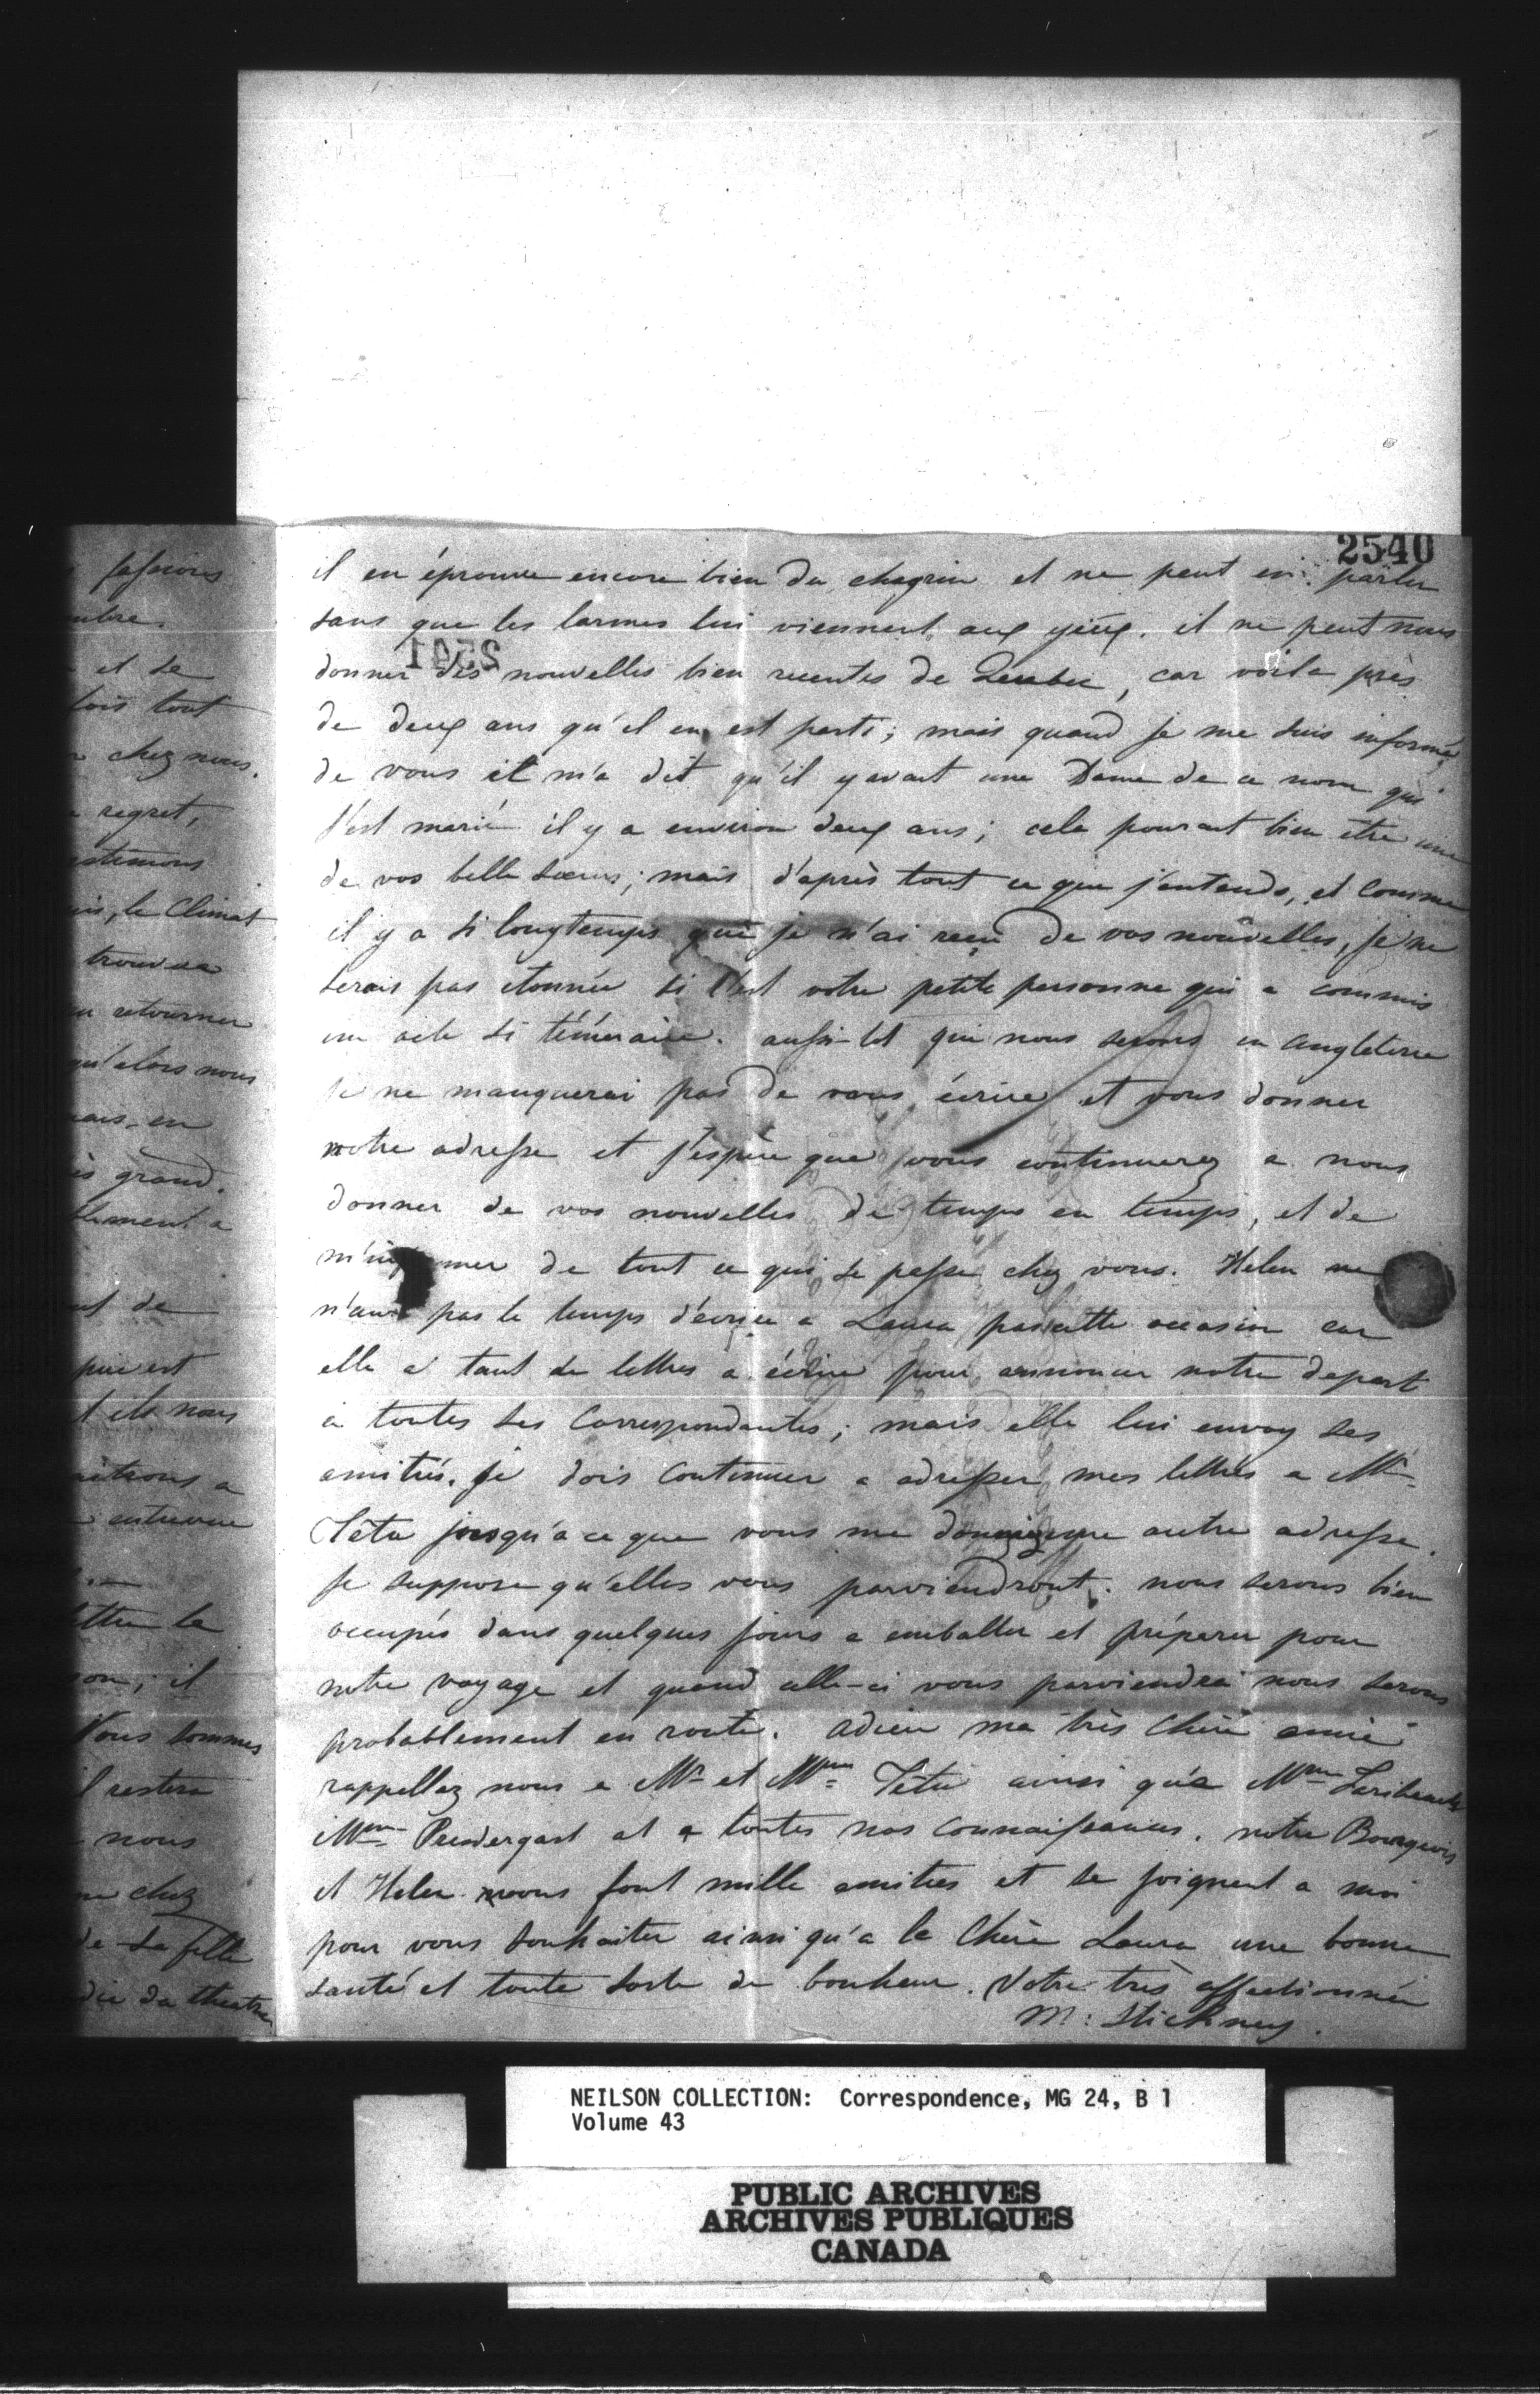 2540
fassions
mbre.
et se
fois tout
chez nous.
regret,
estimons
le Climat
trouvera
retourner
qu'alors nous
mais en
grand.
blement a
de
est
ils nous
a
entrevue
ttre la
il
Nous sommes
il restera
nous
chez
de sa fille
du theatre
il en éprouve encore bien du chagrin et ne peut en parler
sans que les larmes lui viennent aux yeux. il ne peut nous
2541
donner des nouvelles bien recentes de Quebec, car voila près
de deux ans qu'il en est parti; mais quand je me suis informé
de vous il m'a dit qu'il y avait une Dame de ce nom qui
s'est mariée il y a environ deux ans; cela pourait bien être une
de vos belle soeurs; mais d'après tout ce que j'entends, et comme
il y a si longtemps que je n'ai reçu de vos nouvelles, je ne
serais pas etonnée si c'est votre petite personne qui a commis
un acte si téméraire. aussi-tot que nous serons en angleterre
je ne manquerai pas de vous écrire et vous donner
notre adresse et j'espère que vous continuerez a nous
donner de vos nouvelles de temps en temps, et de
m'informer de tout ce qui se passe chez vous. Helen ne
n'aura pas le temps d'écrire a Laura par cette occasion car
elle a tant de lettres a écrire pour annoncer notre depart
a toutes ses Correspondantes; mais elle lui envoy ses
amitiés. je dois Continuer a adresser mes lettres a Mr
Têtu jusqu'a ce que vous me donniez une autre adresse.
Je suppose qu'elles vous parviendront. nous serons bien
occupés dans quelques jours a emballer et préparer pour
notre voyage et quand celle-ci vous parviendra nous serons
probablement en route. adieu ma très Chère amie
rappellez nous a Mr et Mme Têtu ainsi qu'a Mme
Mme Prendergast et a toutes nos connaissances. notre Bourgeois
et Helen vous font mille amities et se joignent a moi
pour vous souhaiter ainsi qu'a la Chère Laura une bonne
santé et toute sorte de bonheur. Votre très affectionnée
M: Stickney.
NEILSON COLLECTION: Correspondence, MG 24, B 1
Volume 43
PUBLIC ARCHIVES
ARCHIVES PUBLIQUES
CANADA